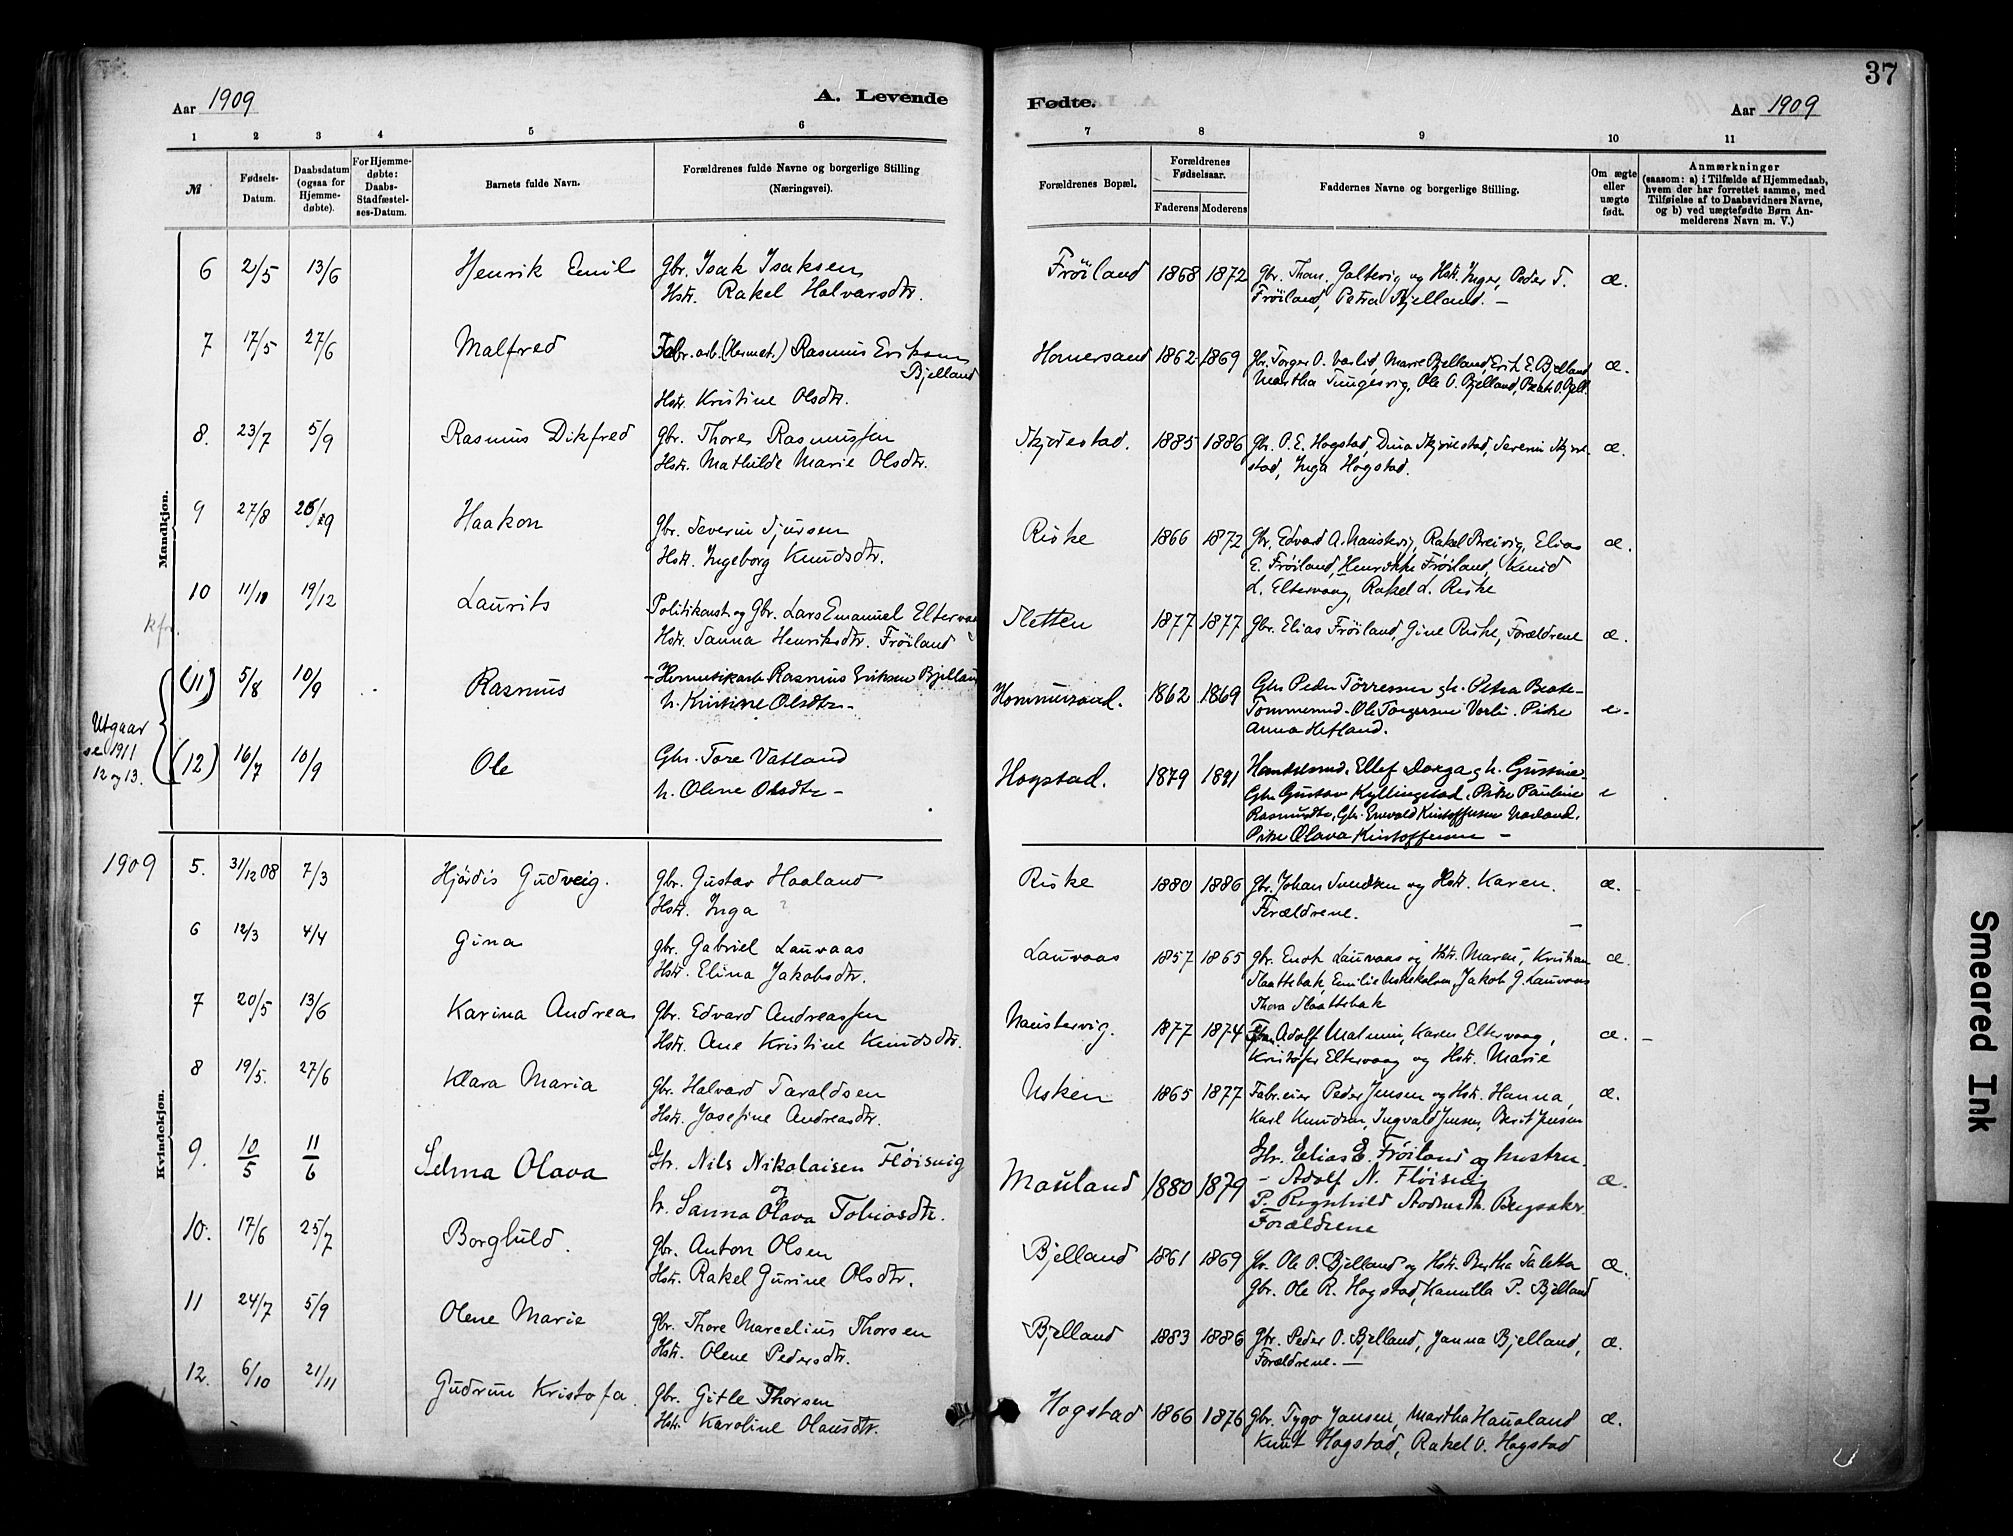 37
Aar 1909
A. Levende
Fødte.
Aar 1909
1 2 3 4 5 6 7 8 9 10 11
№
Fødsels-
Datum.
Daabsdatum
(ogsaa for
Hjemme-
døbte).
For Hjemme-
døbte:
Daabs-
Stadfæstel-
ses-Datum.
Barnets fulde Navn.
Forældrenes fulde Navne og borgerlige Stilling
(Næringsvei).
Forældrenes Bopæl.
Forældrenes
Fødselsaar.
Faderens Moderens
Faddernes Navne og borgerlige Stilling.
Om ægte
eller
uægte
født.
Anmærkninger
(saasom: a) i Tilfælde af Hjemmedaab,
hvem der har forrettet samme, med
Tilføielse af to Daabsvidners Navne,
og b) ved uægtefødte Børn An-
melderens Navn m. V.)
Mandkjøn.
6 2/5 13/6 Henrik Emil Gbr. Isak Isaksen Fröiland 1868 1872 Gbr. Thom. Galtevig og Hstr. Inger, Peder T. æ.
Hstr. Rakel Halvarsdtr. Fröiland, Petra Bjelland. –
7 17/5 27/6 Malfred Fabr. arb. (Hermet.) Rasmus Eriksen Homersand 1862 1869 Gbr. Torger O. Varlid, Marie Bjelland, Erik E. Bjelland æ.
Bjelland Martha Tungesvig, Ole O. Bjelland, Beate O. Bjell.
Hstr. Kristine Olsdtr.
8. 23/7 5/9 Rasmus Dikfred Gbr. Thores Rasmussen Skjörestad. 1885 1886 Gbr. O. E. Hogstad, Dina Skjörestad, Severin Skjöre- æ.
Hstr. Mathilde Marie Olsdtr. stad, Inga Hogstad.
9 27/8 Haakon Gbr. Severin Sjursen Riske 1866 1872 Gbr. Edvard A. Naustvig, Rakel Breivig, Elias æ.
Hstr. Ingeborg Knudsdtr. E. Fröiland, Henrikke Fröiland, Knud
L. Eltervaag, Rakel L. Riske
10 19/12 Laurits Politikonst og Gbr. Lars Emanuel Eltervaa Sletten 1877 1877 Gbr. Elias Fröiland, Gine Riske, Forældrene æ.
kfr. Hstr. Sanna Henriksdtr. Fröiland
(11) 5/8 10/9 Rasmus Hermetikarb Rasmus Eriksen Bjelland Hommersand. 1862 1869 Gbr Peder Törressen g h. Petra Beate
h. Kristine Olsdtr – Tommersand. Ole Torgersen Varli. Pike
Anna Hetland.
Utgaar
se 1911
12 og 13.
(12) 16/7 10/9 Ole Gbr. Tore Vatland Hogstad. 1879 1881 Ellef Dorga g h. Gustine
h. Olene Olsdtr – Gbr Gustav Kyllingstad. Pike Pauline
Rasmusdtr, Gbr. Enevald Kristoffersen Vatland.
Pike Olava Kristoffersen –
Kvindekjøn.
1909 5. 31/12 08 7/3 Hjördis Gudveig. Gbr. Gustav Haaland Riske 1880 1886 Gbr. Johan Svendsen og Hstr. Karen. æ.
Hstr. Inga ? Forældrene.
6 12/3 4/4 Gina Gbr. Gabriel Lauvaas Lauvaas 1857 1865 Gbr. Enok Lauvaas og Hstr. Maren, Kristian æ.
Hstr. Elina Jakobsdtr. Slaattebak, Emilie Uskekalven, Jakob G. Lauvaas
Thora Slaattebak
7 20/5 13/6 Karina Andreas Gbr. Edvard Andreassen Naustervig. 1877 1874 Adolf Malmin, Karen Eltervaag, æ.
Hstr. Ane Kristine Knudsdtr. Kristofer Eltervaag og Hstr. Marie
8 19/5. 27/6 Klara Maria Gbr. Halvard Taraldsen Usken 1865 1877 Fabr. eier Peder Jensen og Hstr. Hanna, æ.
Hstr. Josefine Andreasdtr. Karl Knudsen, Ingvald Jensen, Berit Jensen
9. 10/5 11/6 Selma Olava Gbr. Nils Nikolaisen Flöisvig Mauland 1880 1879 Gbr. Elias E. Fröiland og hustru. æ.
h. Sanna Olava Tobiasdtr. – Adolf N. Flöisvig
P. Regnhild Bergsaker.
Forældrene
10. 17/6 25/7 Borghild. Gbr. Anton Olsen Bjelland 1861 1869 Gbr. Ole O. Bjelland og Hstr. Bertha Taletta æ.
Hstr. Rakel Gurine Olsdtr. Gbr. Ole R. Hogstad, Kamilla P. Bjelland
11 24/7 5/9 Olene Marie Gbr. Thore Marcelius Thorsen Bjelland 1883 1886 Gbr. Peder O. Bjelland, Janna Bjelland, æ.
Hstr. Olene Pedersdtr. Forældrene. –
12. 6/10 21/11 Gudrun Kristofa. Gbr. Gitle Thorsen Hogstad 1866 1876 Gbr. Tygo Jansen, Martha Haualand æ.
Hstr. Karoline Olausdtr. Knut Hogstad, Rakel O. Hogstad
Smeared Ink